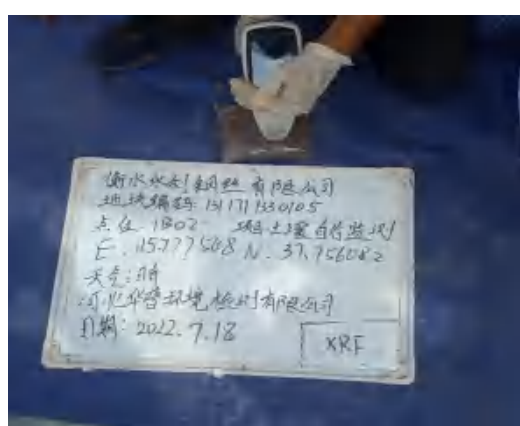 衡水水利钢丝有限公司
地块编码 1311711330105
点位 1B02 项目土壤自行监测
E. 115.777568 N. 37.756082
天气: 晴
河北华普环境检测有限公司
日期: 2022.7.18
XRF